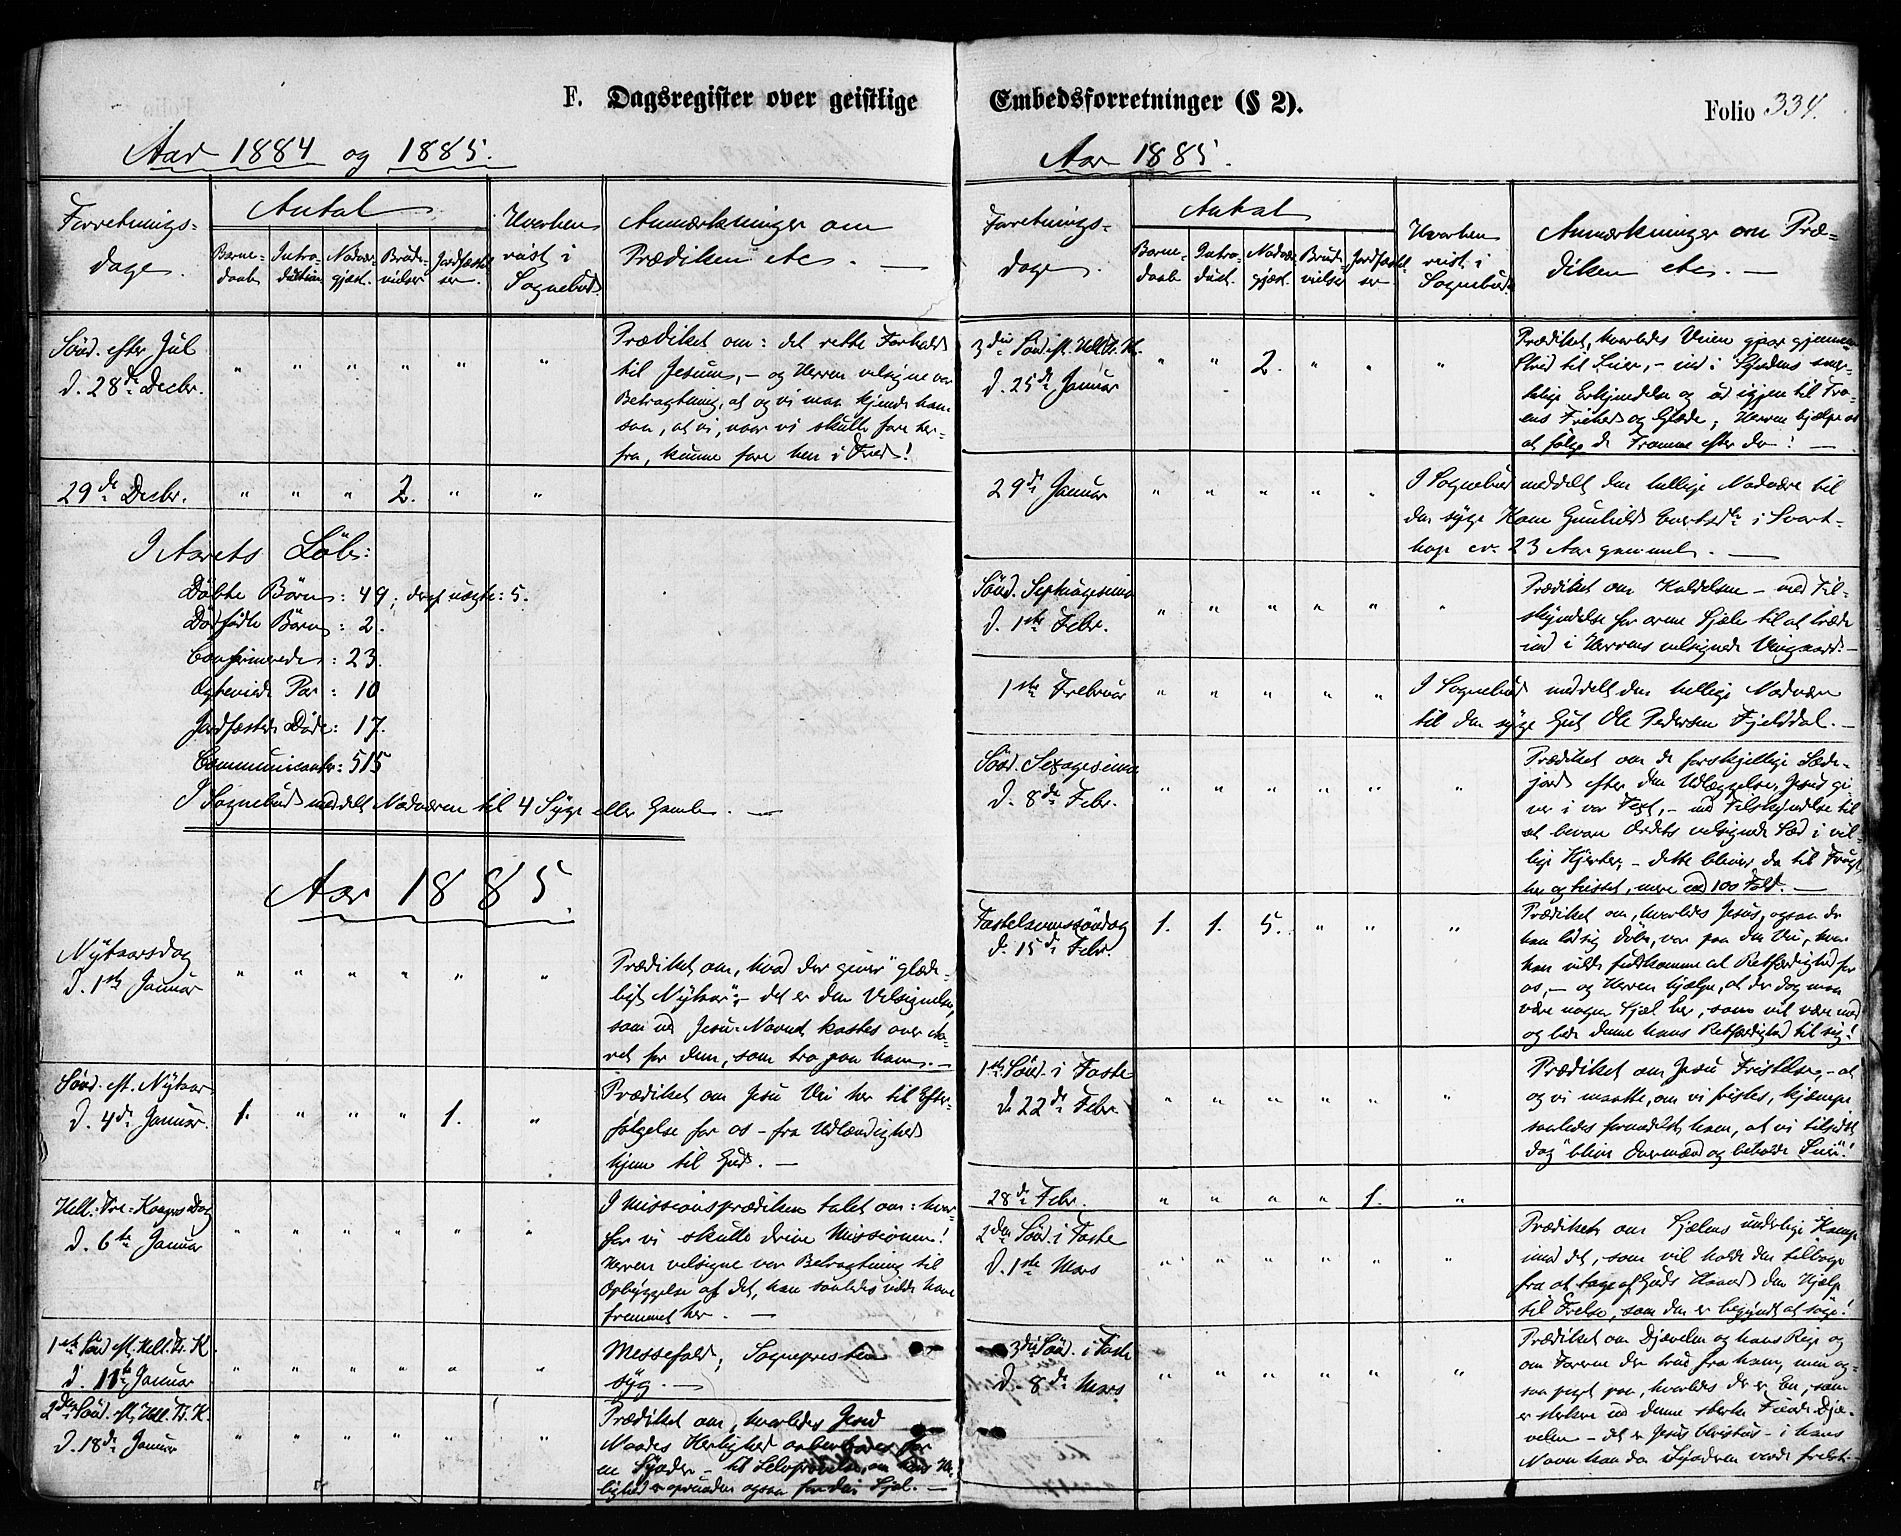 F. Dagsregister over geistlige
Aar 1884 og 1885.
Forretnings-
dage.
Antal
Barne-
daab
Intro-
duktion
Nadver-
gjest.
Brude-
vielser
Jordfæstel-
ser.
Hvorhen
reist i
Sognebud.
Anmærkninger om
Prædiken etc. —
Sönd. efter Jul
d. 28de Decbr.
" " " " " "
Prædiket om: det rette Forhold
til Jesum, – og Herren velsigne vor
Betragtning, at og vi maa kjende ham
saa, at vi, naar vi skulle fare her-
fra, kunne fare hen i Fred!
29de Decbr. " " " 2. " "
I Aarets Løb:
Döbte Börn: 49; deraf uægte: 5.
Dödfödte Börn: 2.
Confirmerede: 23.
Ægteviede Par: 10
Jordfæstede Döde: 17.
Communicanter: 515
I Sognebud meddelt Nadveren til 4 Syge eller Gamle. —
Aar 1885.
Nytaarsdag
d. 1ste Januar
" " " " " "
Prædiket om, hvad der giver "glæde-
ligt Nytaar"; – det er den Velsignelse,
som ved Jesu-Navnet kastes over Aa-
ret for dem, som tro paa ham. —
Sönd. eft. Nytaar
d. 4de Januar. 1. " " " 1. "
Prædiket om Jesu Vei her til Efter-
følgelse for os – fra Udlændighed
hjem til Gud. —
Hell.-Tre-Konges Dag
d. 6te Januar
" " " " " "
I Missionsprædiken talet om: hvor-
for vi skulle drive Missionen!
Herren velsigne vor Betragtning til
Opbyggelse af det, han saaledes vilde have
fremmet her. —
1ste Sönd eft. Hell. Tr. K.
d. 11te Januar
" " " " " "
Messefald; Sognepresten
syg. —
2den Sönd. eft. Hell. Tr. K.
d. 18de Januar
" " " " " "
Prædiket om, hvorledes Jesu
Naades Herlighed aabenbares for
en Synder – til Selvprøvelse, om den Her-
lighed er oprunden ogsaa for din Sjæl. —
Embedsforretninger (§ 2).
Folio 334.
Aar 1885.
Forretnings-
dage.
Antal
Barne-
daab
Intro-
dukt.
Nadver-
gjæst.
Brude-
vielser
Jordfæstel-
ser
Hvorhen
reist i
Sognebud.
Anmærkninger om Præ-
diken etc. —
3die Sönd. eft. Hell. Tr. K.
d. 25de Januar
" " 2. " " "
Prædiket, hvorledes Veien gaar gjennem
Strid til Seier, – ind i Syndens smer-
telige Erkjendelse og ud igjen til Tro-
ens Frihed og Glæde; Herren hjælpe os
at følge de Fromme efter da! —
29de Januar " " " " "
I Sognebud meddelt den hellige Nadvere til
den syge Kone Gunhild i Svart-
hop cr. 23 Aar gammel. —
Sönd. Septuagesima
d. 1ste Febr.
" " " " " "
Prædiket om Kaldelsen – med Til-
skyndelse for arme Sjæle til at træde
ind i Herrens velsignede Vingaard. —
1ste Februar " " " " "
I Sognebud meddelt den hellige Nadvere
til den syge Gut Ole Pedersen Fjelddal. —
Sönd. Sexagesima
d. 8de Febr.
" " " " " "
Prædiket om de forskjellige Sæde-
jord efter den Udlæggelse, Jesus gi-
ver i vor Text, – med Tilskyndelse til
at bevare Ordets velsignede Sæd i vil-
lige Hjerter; – dette bliver da til Frugt
her og hisset, mere end 100 Fold. —
Fastelavnssöndag
d. 15de Febr.
1. 1. 5. " " "
Prædiket om, hvorledes Jesus, ogsaa da
han lod sig døbe, var paa den Vei, hvor
han vilde fuldkomme al Retfærdighed for
os, – og Herren hjælpe, at der dog maa
være nogen Sjæl her, som vil være med
og lade denne hans Retfærdighed til sig!
1ste Sönd. i Faste
d. 22de Febr.
" " " " " "
Prædiket om Jesu Fristelse, – at
og vi maatte, om vi fristes, kjæmpe
saaledes formedelst ham, at vi tilsidst
dog blive Overmænd og beholde Seier!
28de Febr. " " " " 1. "
2den Sönd. i Faste
d. 1ste Mars
" " " " " "
Prædiket om Sjælens underlige Kamp
imod det, som vil holde den tilbage
fra at tage af Guds Haand den Hjælp
til Frelse, som den er begyndt at søge!
3die Sönd. i Faste
d. 8de Mars
" " " " " "
Prædiket om Djævelen og hans Rige og
om Farerne der ud fra ham, men og-
saa peget paa, hvorledes der er En, som
er stærkere end denne stærke Fiende Djæ-
velen – det er Jesus Christus – i hans
Navn kan da Synderen vorde frelst.